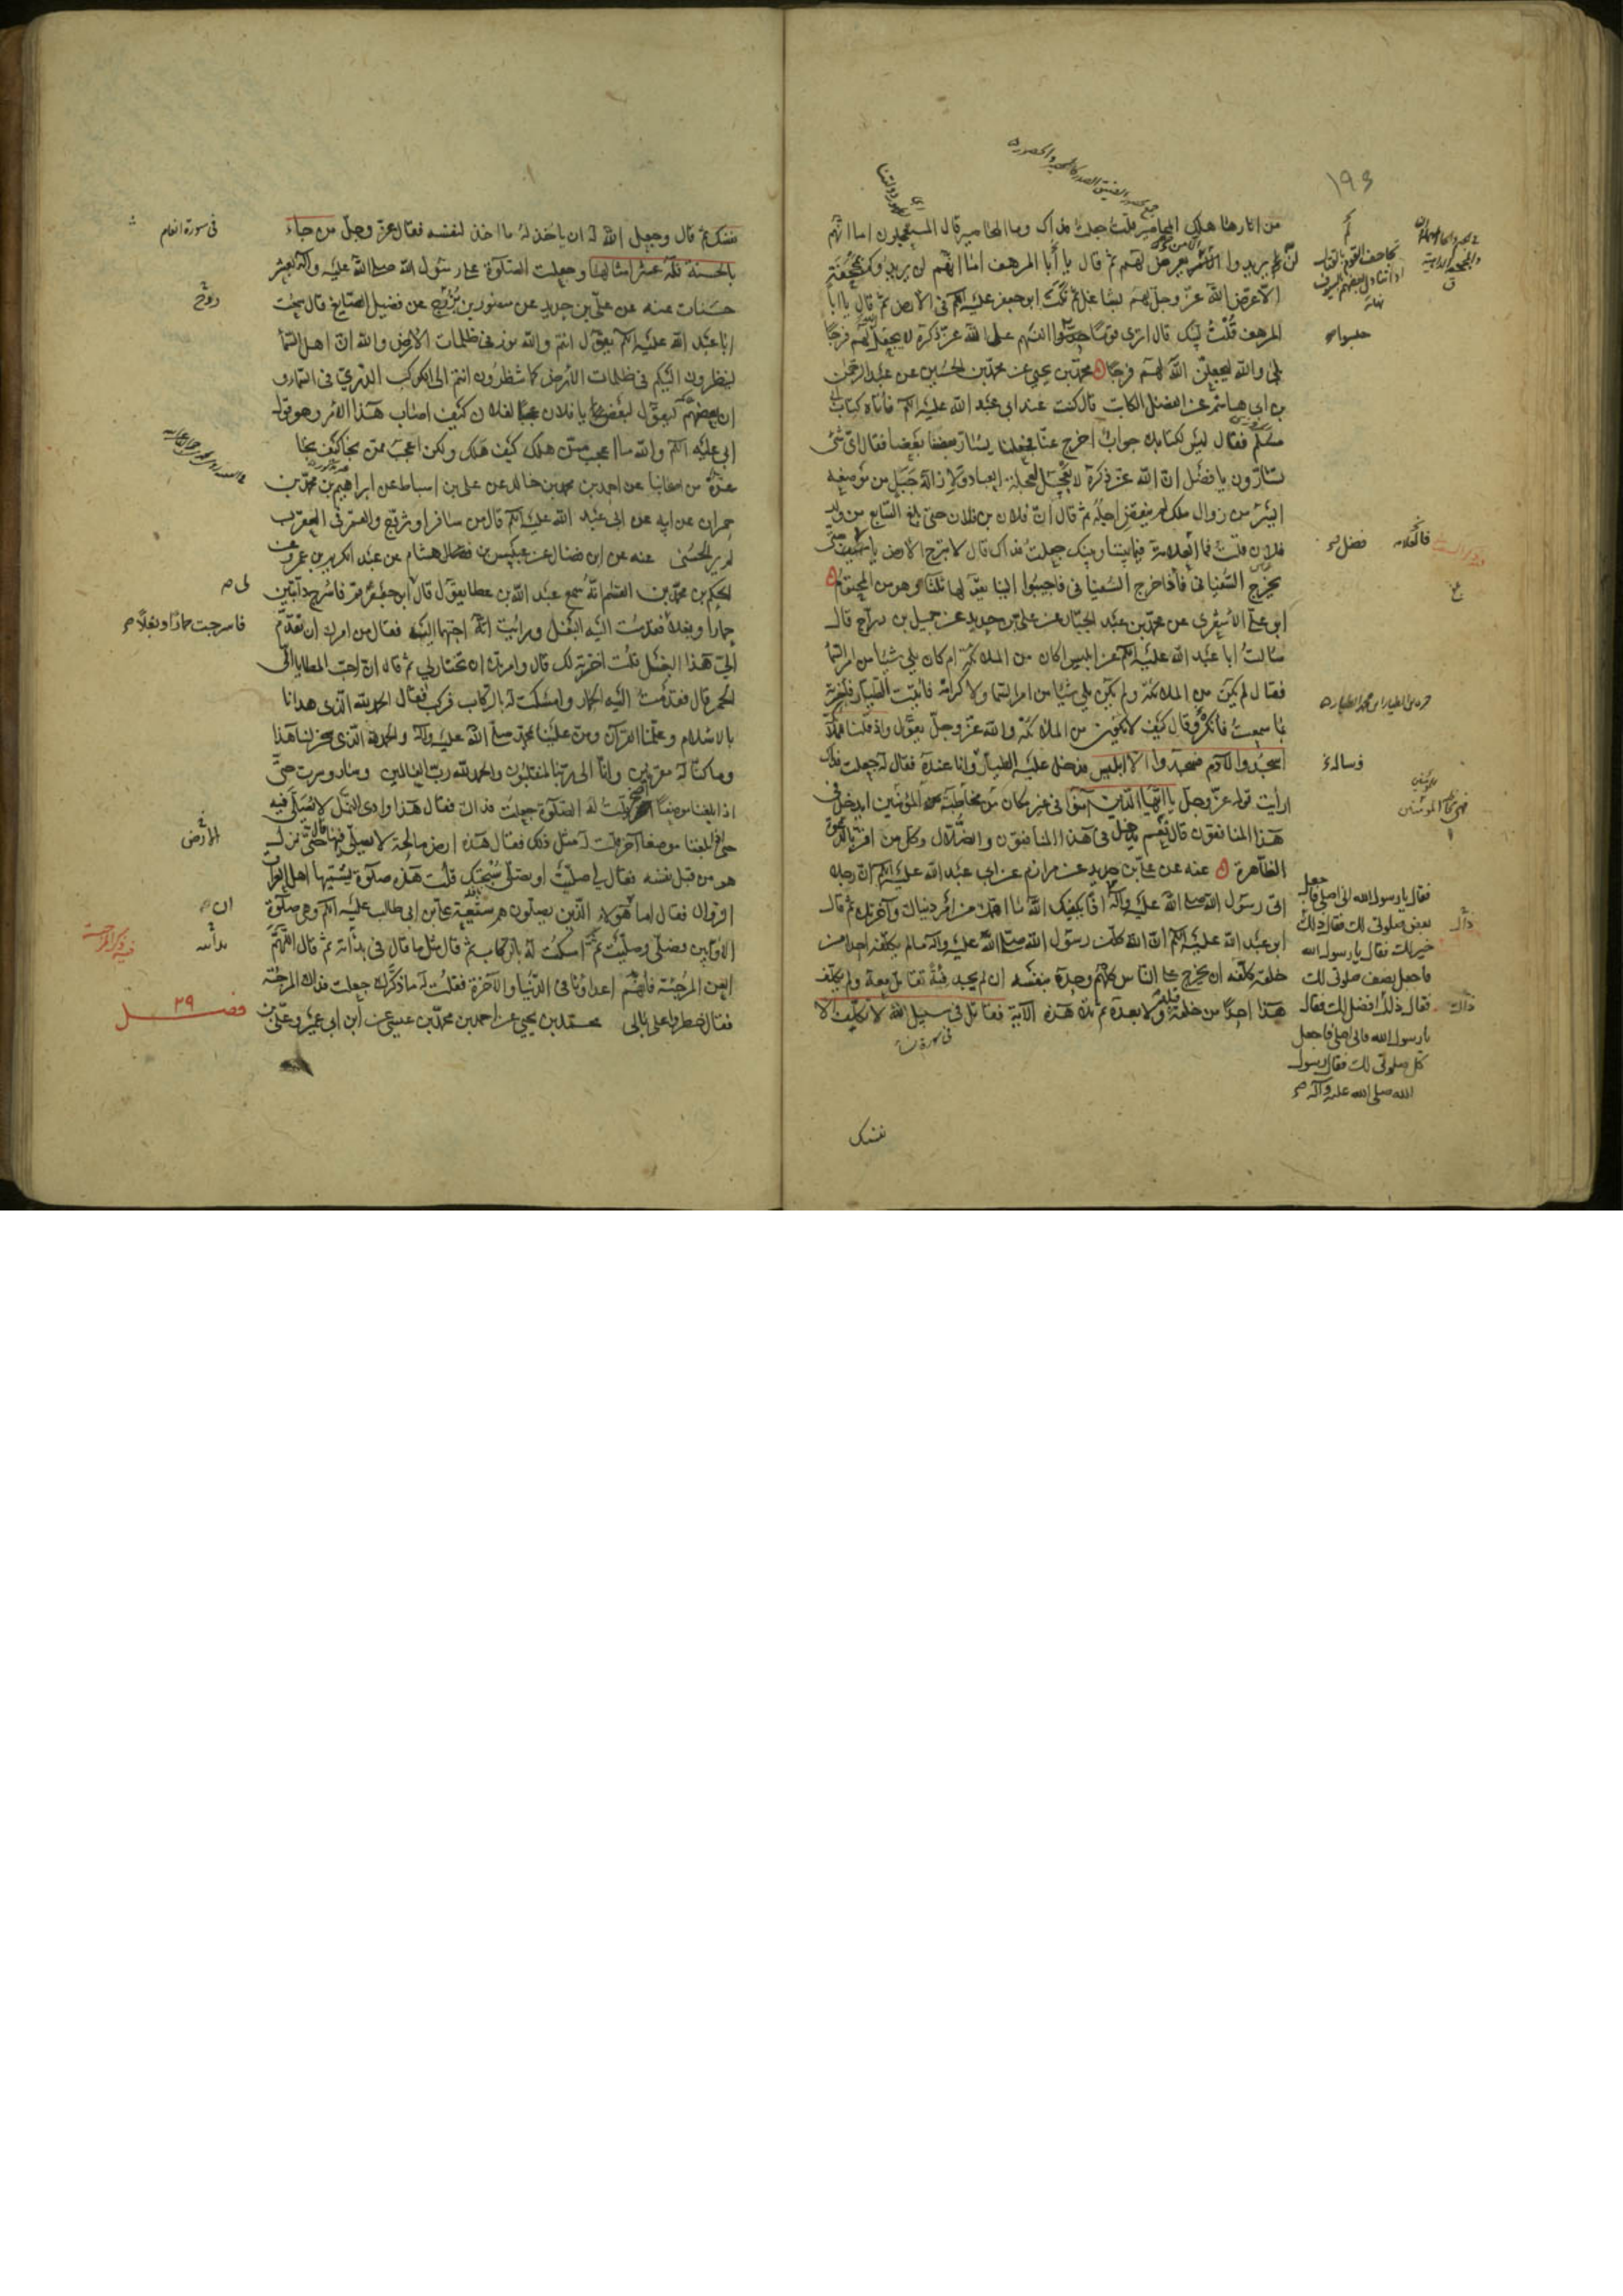 ١٩٤
من اثارها هلك المحاصير قلت جعلت فداك وما المحاصير قال المستعجلون اما انهم
لن يريدوا الا من يعرض لهم ثم قال يا ابا المرهف اما انهم لن يريدوكم بمجحفة
الا عرض الله عز وجل لهم بشاغل ثم نكت ابو جعفر عليه السلم في الارض ثم قال يا ابا
المرهف قلت لبيك قال اترى قوما حبسوا انفسهم على الله عز ذكره لا يجعل الله لهم فرجا
بلى والله ليجعلن الله لهم فرجا محمد بن يحيى عن محمد بن الحسين عن عبد الرحمن
بن ابي هاشم عن الفضل الكاتب قال كنت عند ابي عبد الله عليه السلم فاتاه كتاب ابي
مسلم فقال ليس لكتابك جواب اخرج عنا فجعلنا يسار بعضنا بعضا فقال اي شئ
تسارون يا فضل ان الله عز ذكره لا يعجل لعجلة العباد ولازالة جبل من موضعه
ايسر من زوال ملك لم ينقض اجله ثم قال ان فلان بن فلان حتى بلغ السابع من ولد
فلان قلت فما العلامة فيما بيننا وبينك جعلت فداك قال لا تبرح الارض يا فضل حتى
يخرج السفياني فاذا خرج السفياني فاجيبوا الينا يقولها ثلثا وهو من المحتوم
ابو علي الاشعري عن محمد بن عبد الجبار عن علي بن حديد عن جميل بن دراج قال
سالت ابا عبد الله عليه السلم عن ابليس اكان من الملائكة ام كان يلي شيئا من امر السما
فقال لم يكن من الملائكة ولم يكن يلي شيئا من امر السما ولا كرامة فاتيت الطيار فاخبرته
بما سمعت فانكره وقال كيف لا يكون من الملائكة والله عز وجل يقول واذ قلنا للملائكة
اسجدوا لآدم فسجدوا الا ابليس فدخل عليه الطيار وانا عنده فقال له جعلت فداك
ارايت قوله عز وجل يا ايها الذين آمنوا في غير مكان من مخاطبة المؤمنين ايدخل في
هذا المنافقون قال نعم يدخل في هذا المنافقون والضلال وكل من اقر بالدعوة
الظاهرة عنه عن علي بن حديد عن مرازم عن ابي عبد الله عليه السلم ان رجلا
اتى رسول الله صلى الله عليه وآله اذا يكفيك الله ما اهمك من امر دنياك وآخرتك ثم قال
ابو عبد الله عليه السلم ان الله كلف رسول الله صلى الله عليه وآله ما لم يكلفه احدا من
خلقه كلفه ان يخرج على الناس كلهم وحده بنفسه ان لم يجد فئة تقاتل معه ولم يكلف
هذا احدا من خلقه قبله ولا بعده ثم تلا هذه الآية فقاتل في سبيل الله لا تكلف الا
في سورة نساء
نفسك
حبسوا
فالعلامة
فضل
فقال يا رسول الله اني اصلي فاجعل
بعض صلوتي لك فقال ذلك
خير لك فقال يا رسول الله
فاجعل نصف صلوتي لك
فقال ذلك افضل لك فقال
يا رسول الله فاني اصلي فاجعل
كل صلوتي لك فقال رسول
الله صلى الله عليه وآله
نفسك ثم قال وجعل الله له ان ياخذ له ما اخذ لنفسه فقال عز وجل من جاء
بالحسنة فله عشر امثالها وجعلت الصلوة على رسول الله صلى الله عليه وآله بعشر
حسنات عنه عن علي بن حديد عن منصور بن روح عن فضيل الصايغ قال سمعت
ابا عبد الله عليه السلم يقول انتم والله نور في ظلمات الارض والله ان اهل السما
لينظرون اليكم في ظلمات الارض كما تنظرون انتم الى الكوكب الدري في السماء و
ان بعضهم ليقول لبعض يا فلان عجبا لفلان كيف اصاب هذا الامر وهو قول
ابي عليه السلم والله ما اعجب ممن هلك كيف هلك ولكن اعجب ممن نجا كيف نجا
عدة من اصحابنا عن احمد بن محمد بن خالد عن علي بن اسباط عن ابراهيم بن محمد بن
حمران عن ابيه عن ابي عبد الله عليه السلم قال من سافر او تزوج والقمر في العقرب
لم ير الحسنى عنه عن ابن فضال عن عبيس بن هشام عن عبد الكريم بن عمرو عن
الحكم بن محمد بن القسم انه سمع عبد الله بن عطا يقول قال ابو جعفر قم فاسرج دابتين
حمارا وبغلا فقدمت اليه البغل ورايت انه احبهما اليه فقال من امرك ان تقدم
الي هذا البغل قلت اخترته لك قال وامرتك ان تختار لي ثم قال ان احب المطايا الي
الحمر قال فقدمت اليه الحمار وامسكت له بالركاب فركب فقال الحمد لله الذي هدانا
بالاسلام وعلمنا القرآن ومن علينا بمحمد صلى الله عليه وآله والحمد لله الذي سخر لنا هذا
وما كنا له مقرنين وانا الى ربنا لمنقلبون والحمد لله رب العالمين وسار وسرت حتى
اذا بلغنا موضعا آخر قلت له الصلوة جعلت فداك فقال هذا وادي النمل لا يصلى فيه
حتى اذا بلغنا موضعا آخر قلت له مثل ذلك فقال هذه ارض مالحة لا يصلى فيها قال حتى نزل
هو من قبل نفسه فقال لي صليت او تصلي سبحتك قلت هذه صلوة يسميها اهل العراق
الزوال فقال اما هؤلاء الذين يصلون هم شيعة علي بن ابي طالب عليه السلم وهي صلوة
الاوابين فصلى وصليت ثم امسكت له بالركاب ثم قال مثل ما قال في بدأته ثم قال اللهم
العن المرجئة فانهم اعداؤنا في الدنيا والآخرة فقلت له ما ذكرك جعلت فداك المرجئة
فقال خطروا على بالي محمد بن يحيى عن احمد بن محمد بن عيسى عن ابن ابي عمير وعلي بن
في سورة انعام
روح
لي
فاسرجت حمارا وبغلا
الارض
ان
بدأته
فصل ٢٩